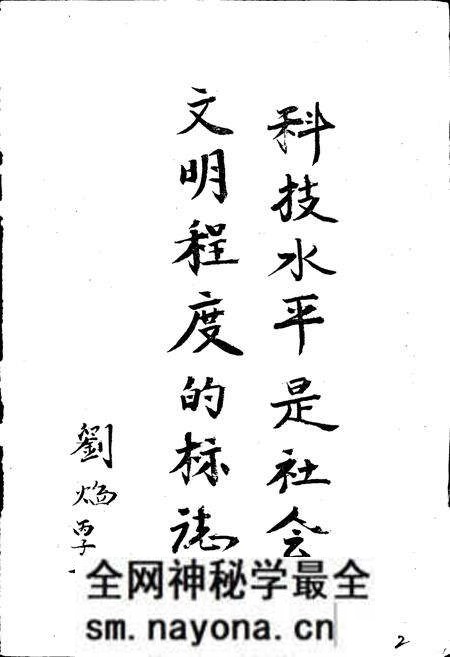 科技水平是社会
文明程度的标誌
劉
丙子
全网神秘学最全
sm.nayona.cn
2